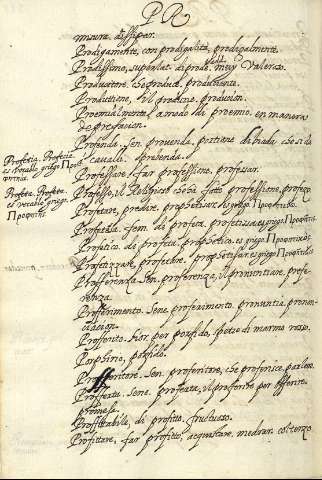 PR
misura. dissipar.
Prodigamente, con prodigalità, prodegalmente.
Prodissimo, superlat. di prode. muy Valeroso.
Produttore, che produce. produciente.
Produttione, il produrre, producion.
Proemialmente a modo di proemio. en manera
de prefacion.
Profenda. sen. provenda, portione di biada che si da
cavalli. prevenda.
Professare. far professione, professar.
Professo, il Religioso che ha fatto professione, professo.
Profetare, predire, prophetizar. es griego
Profetessa. fem. di profeta. profetissa. es griego
Profetico. di profeta. prophetico. es griego
Profetizzare, profetare. prophetizar. es griego
Profferenza. sen. proferenza, il pronuntiare, profe
renza.
Profferimento. sene. proferimento. pronuntia, pronun
ciacion.
Profferito. Sior. per porfido, spetie di marmo rosso.
Porphirio, porfido.
Profferitore. Sen. proferitore, che proferisce, parlero.
Profferta. Sene. proferta, il proferire per Offerire
promesa.
Profittabile, di profitto, fructuoso.
Profittare, far profitto, acquistare, medrar. col terzo.
Profetia. Profecia
es vocablo griego Προφ
Profeta. Profeta.
es vocablo griego.